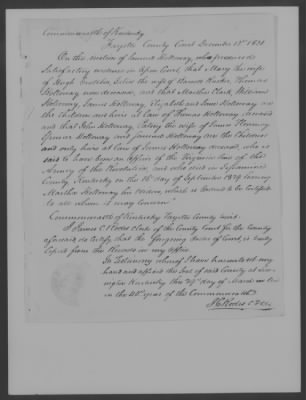 Commonwealth of Kentucky
Fayette County Court December 12th 1831
On the motion of Samuel Holloway, who produced
Satisfactory evidence in Open Court, that Mary the wife
of Hugh the wife of
Holloway now deceased, and that Martha Clark, William
Holloway, James Holloway, Elizabeth and Holloway are
the Children and heirs at Law of Thomas Holloway deceased
and that John Holloway, the wife of
Spencer Holloway and Samuel Holloway are the Children
and only heirs at Law of James Holloway deceased, who is
said to have been an officer of the Virginia line of the
Army of the Revolution, and who died in
County, Kentucky on the 15th day of September leaving
Martha Holloway his widow, which is Ordered to be Certified
to all whom it may concern
Commonwealth of Kentucky Fayette County
I James C Rodes Clerk of the County Court for the County
aforesaid do Certify, that the foregoing Order of Court, is truly
Copied from the Records in my Office
In Testimony whereof I have hereunto set my
hand and affixed the Seal of said County at Lex-
ington Kentucky this day of March
in the 40th year of the Commonwealth
J C Rodes